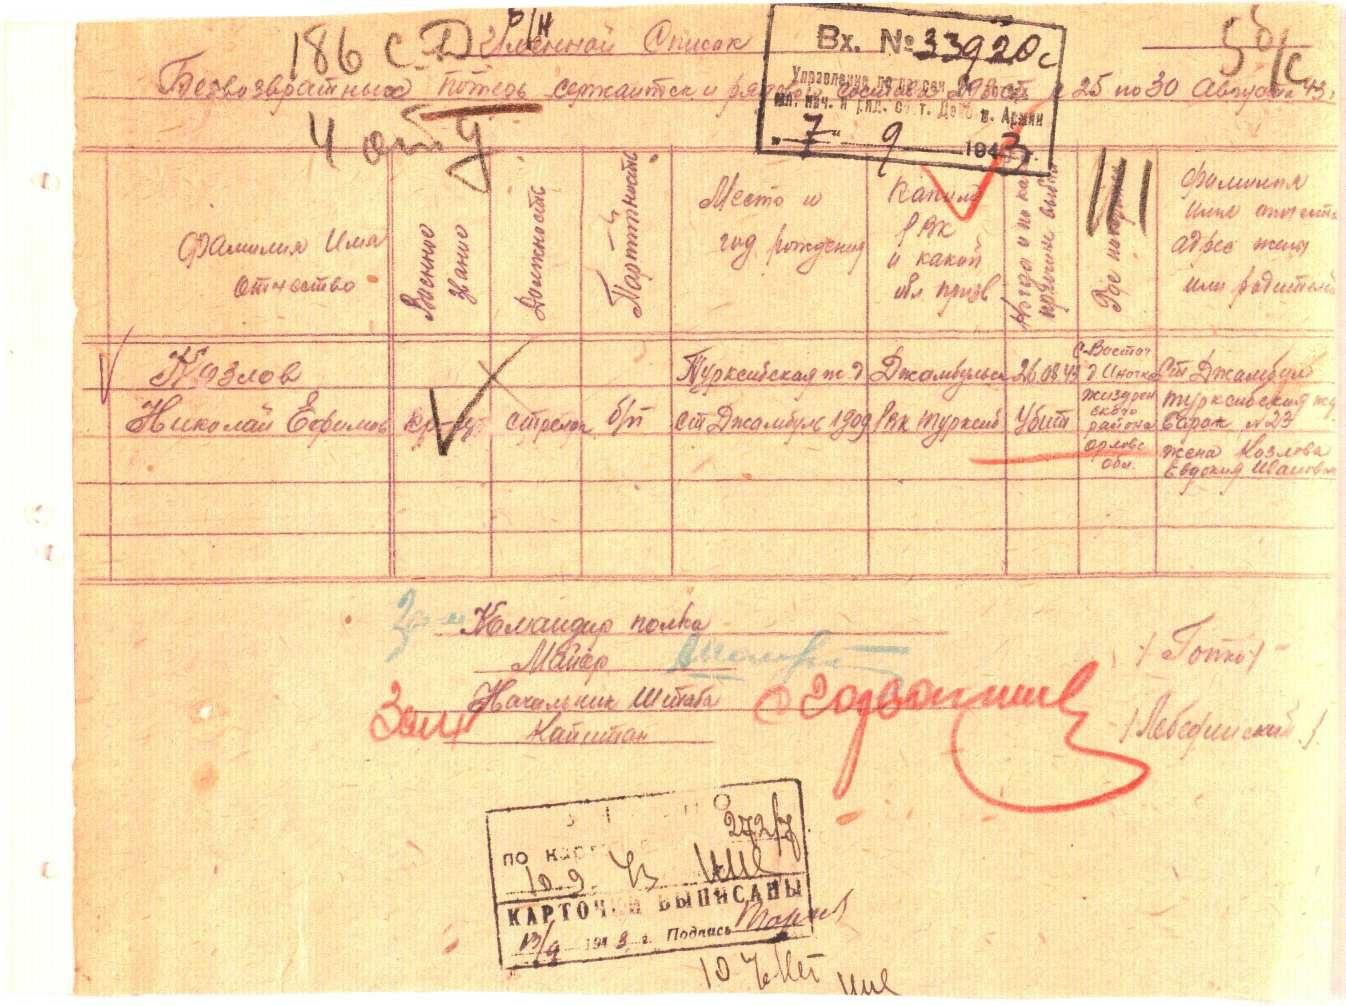 186 с.Д Именной Список
Б/Н
Вх. № 33920с
Безвозвратных потерь сержантск и рядового состава с 25 по 30 Августа 43 г
Управление по
мл. нач. и ряд. сост. Действ. Армии
„7“ 9 1943 г.
4 отд
Фамилия Имя
отчество
Военное
звание
Должность
Партийность
Место и
год рождения
Каким
РВК
и какой
обл призв
Когда и по ка
причине выбыл
III
Фамилия
имя отчеств
адрес жены
или родителей
Козлов
Николай Ефимов
кр-ец
стрелок
б/п
Турксибская ж.д
ст Джамбуль 1909
Джамбульск
РВК Турксиб
26.08.43
Убит
С-Восточ
д Иночка
Жиздрин
ского
района
Орловс
обл.
Ст Джамбул
Турксибская жд
барак №23
жена Козлова
Евдокия Иванов
Командир полка
Майор
/Гопко/
Начальник Штаба
Капитан
/Лебединский./
Зам
272/7
по карт
10.9.43
КАРТОЧКИ ВЫПИСАНЫ
13/9 1943 г. Подпись